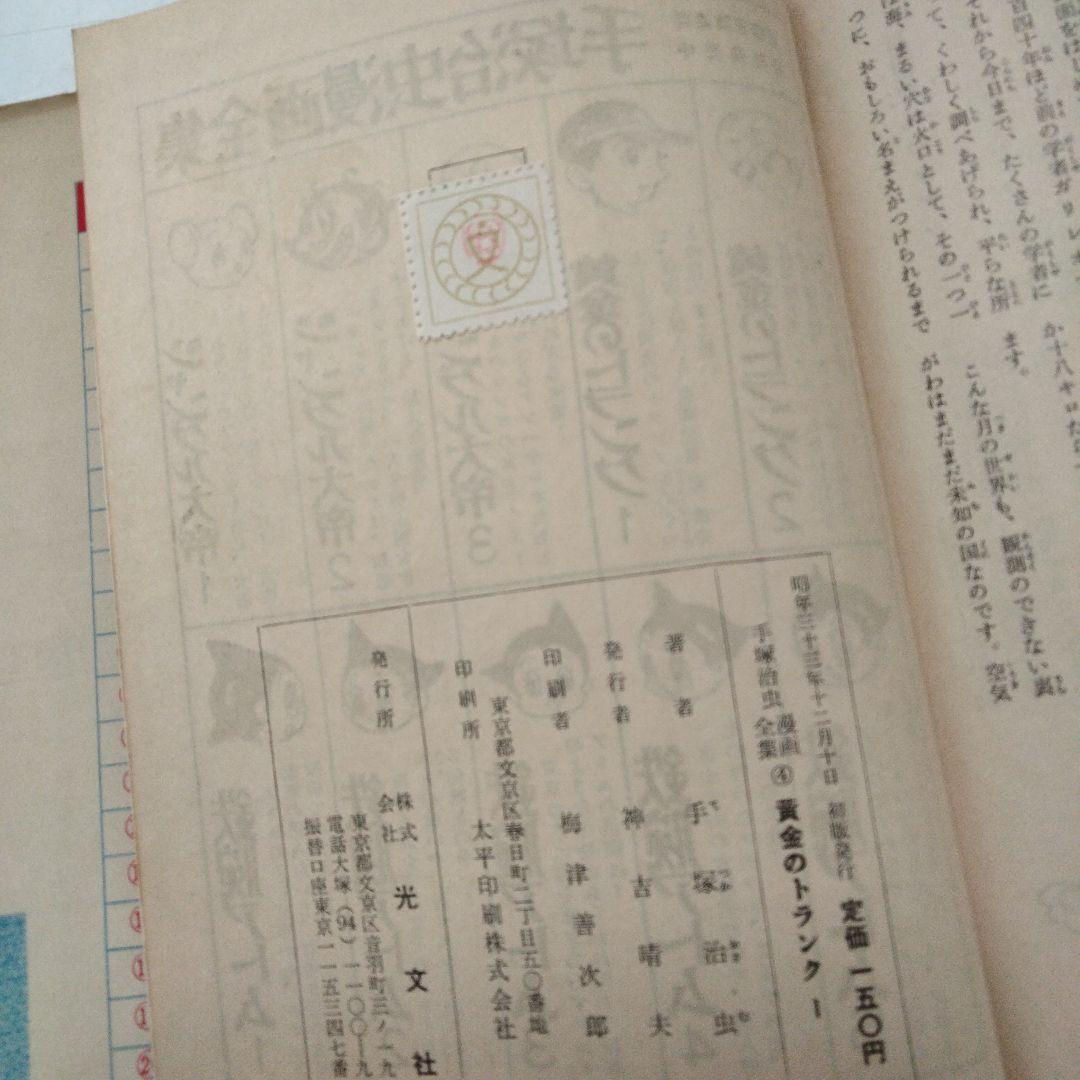 面をはじめ
百四十年ほど前の学者がリ
それから今日まで、たくさんの学者に
て、くわしく調べあげられ、平らな所
は海、まるい穴は火口として、その一つ一
つに、おもしろい名まえがつけられるまで
か十八キロ
ます。
こんな月の世界も、観測のできない裏
がわはまだまだ未知の国なのです。空気
手塚治虫漫画全集
黄金のトランク2
黄金のトランク1
ジャングル大帝3
ジャングル大帝2
ジャングル大帝1
文
昭年三十三年十二月十日 初版発行 定価 一五〇円
手塚治虫漫画全集④ 黄金のトランク 1
著者 手塚治虫
発行者 神吉晴夫
印刷者 梅津善次郎
東京都文京区春日町二丁目五〇番地
印刷所 太平印刷株式会社
発行所 株式会社 光文社
東京都文京区音羽町三ノ一九
電話大塚(94)一一〇〇-九
振替口座東京一一五三四七番